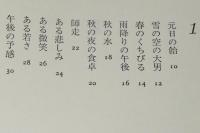 1
元日の飴 10
雪の空の大男 12
春のくちびる 14
雨降りの午後 16
秋の水 18
秋の夜の食卓 20
師走 22
ある悲しみ 24
ある微笑 26
ある若さ 28
午後の予感 30